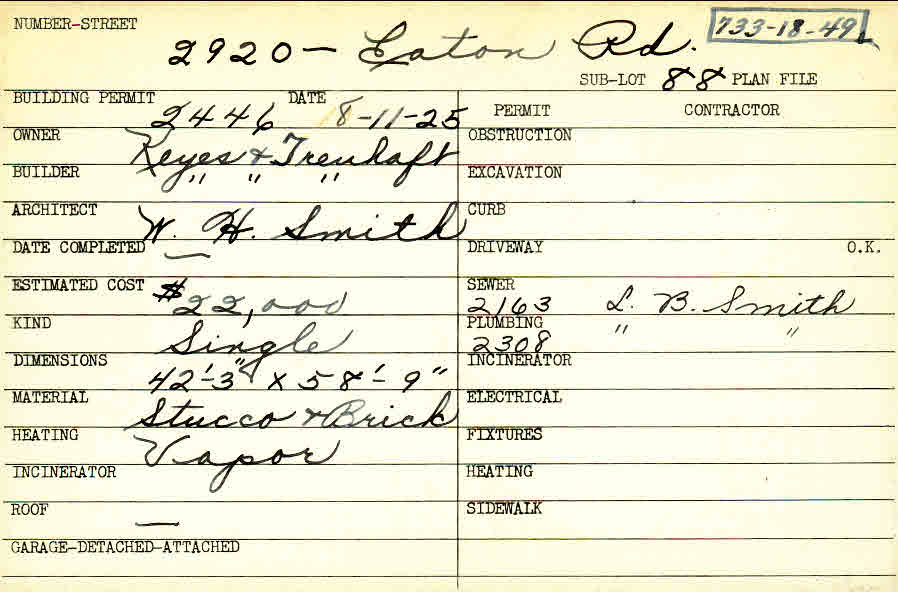 NUMBER-STREET
2920 - Eaton Rd. 733-18-49
SUB-LOT 88 PLAN FILE
BUILDING PERMIT 2446 DATE 8-11-25
OWNER Keyes & Treuhaft
BUILDER " " "
ARCHITECT W. H. Smith
DATE COMPLETED —
ESTIMATED COST $22,000
KIND Single
DIMENSIONS 42'-3" x 58'-9"
MATERIAL Stucco & Brick
HEATING Vapor
INCINERATOR
ROOF —
GARAGE-DETACHED-ATTACHED
PERMIT CONTRACTOR
OBSTRUCTION
EXCAVATION
CURB
DRIVEWAY O.K.
SEWER
2163 L. B. Smith
PLUMBING " "
2308
INCINERATOR
ELECTRICAL
FIXTURES
HEATING
SIDEWALK